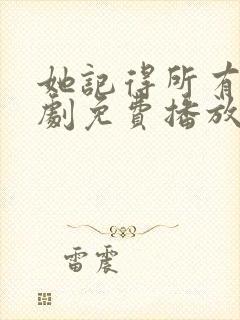 她記得所有
劇免費播放
雷震